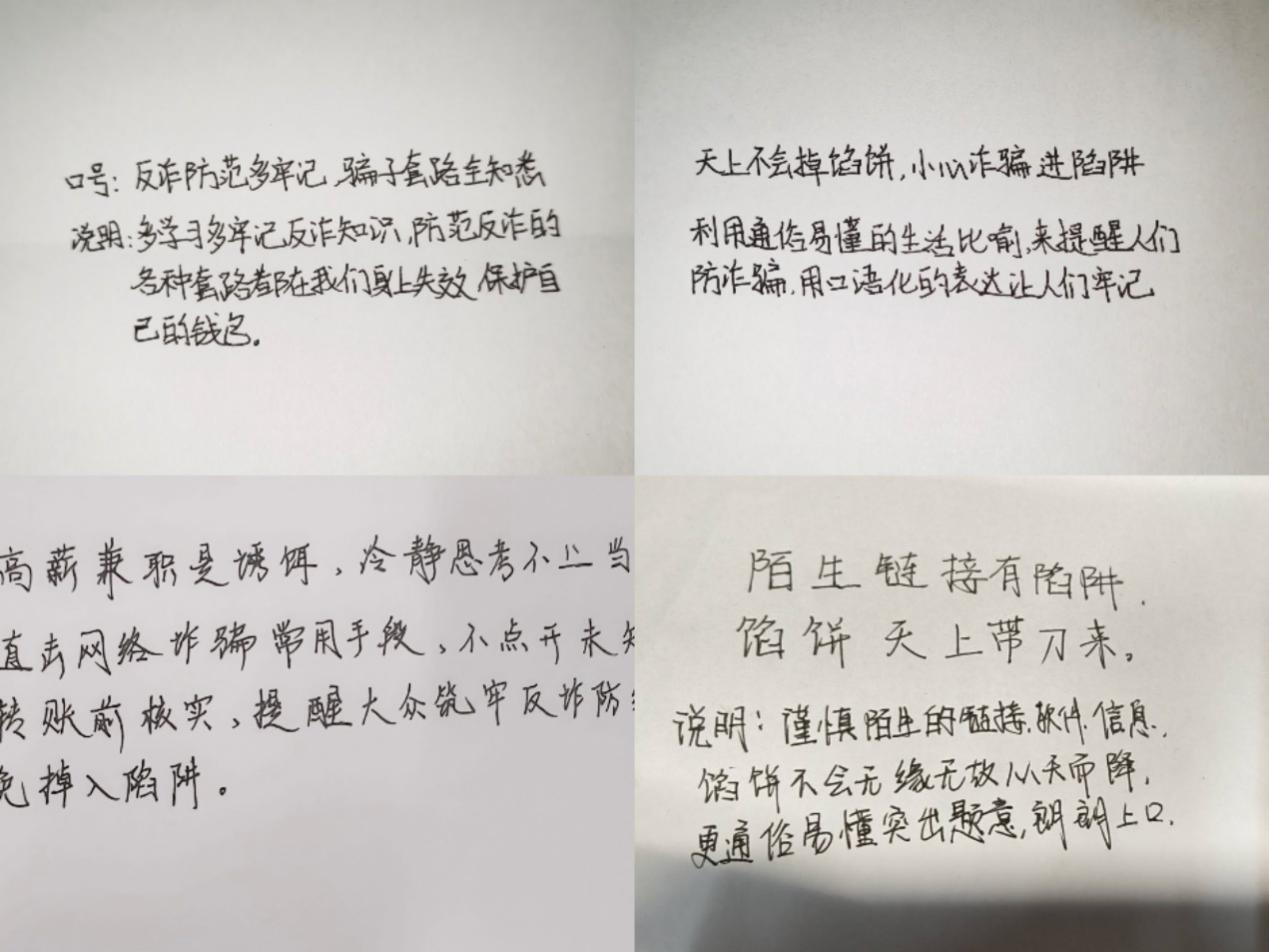 口号：反诈防范多牢记，骗子套路全知悉
说明：多学习多牢记反诈知识，防范反诈的
各种套路都在我们身上失效，保护自
己的钱包。
天上不会掉馅饼，小心诈骗进陷阱
利用通俗易懂的生活比喻，来提醒人们
防诈骗，用口语化的表达让人们牢记
高薪兼职是诱饵，冷静思考不上当
直击网络诈骗常用手段，不点开未知
转账前核实，提醒大众筑牢反诈防
免掉入陷阱。
陌生链接有陷阱，
馅饼天上带刀来。
说明：谨慎陌生的链接、软件、信息，
馅饼不会无缘无故从天而降，
更通俗易懂突出题意，朗朗上口.